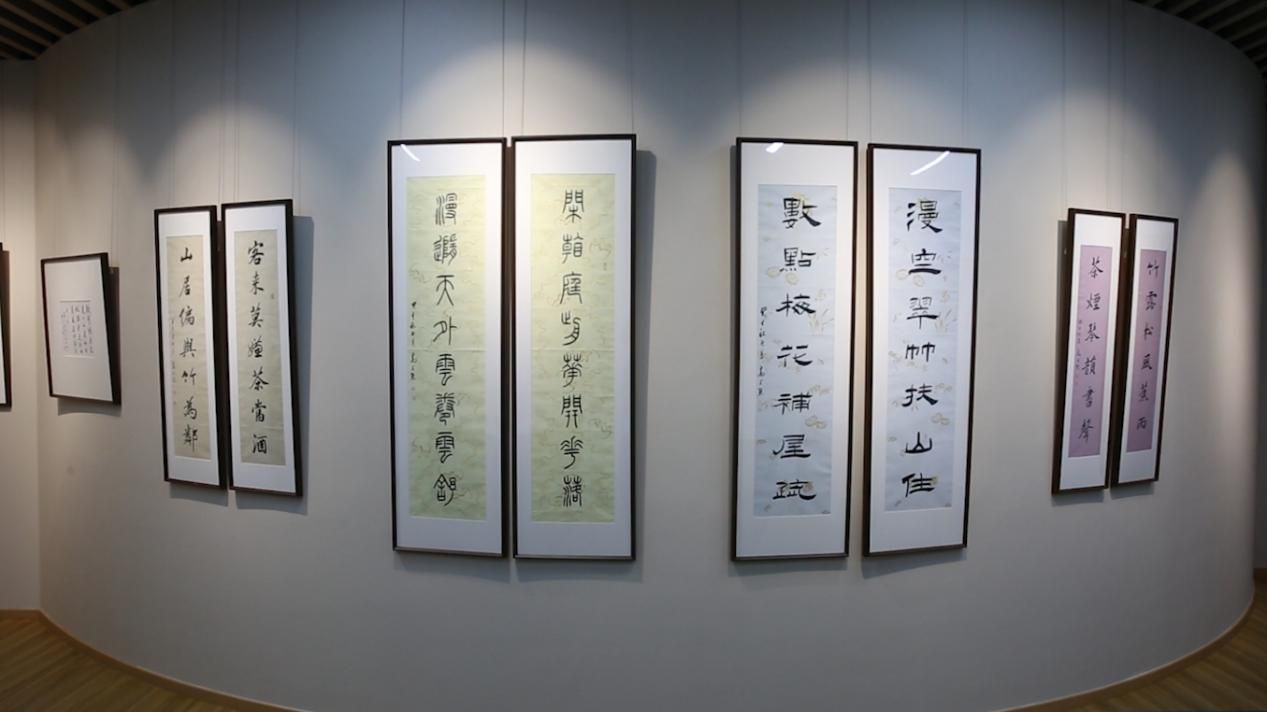 竹露松風蕉雨
茶煙琴韻書聲
漫空翠竹扶山住
數點梅花補屋疏
閑看庭前華開花落
漫隨天外雲卷雲舒
客来莫嫌茶當酒
山居偏與竹為鄰